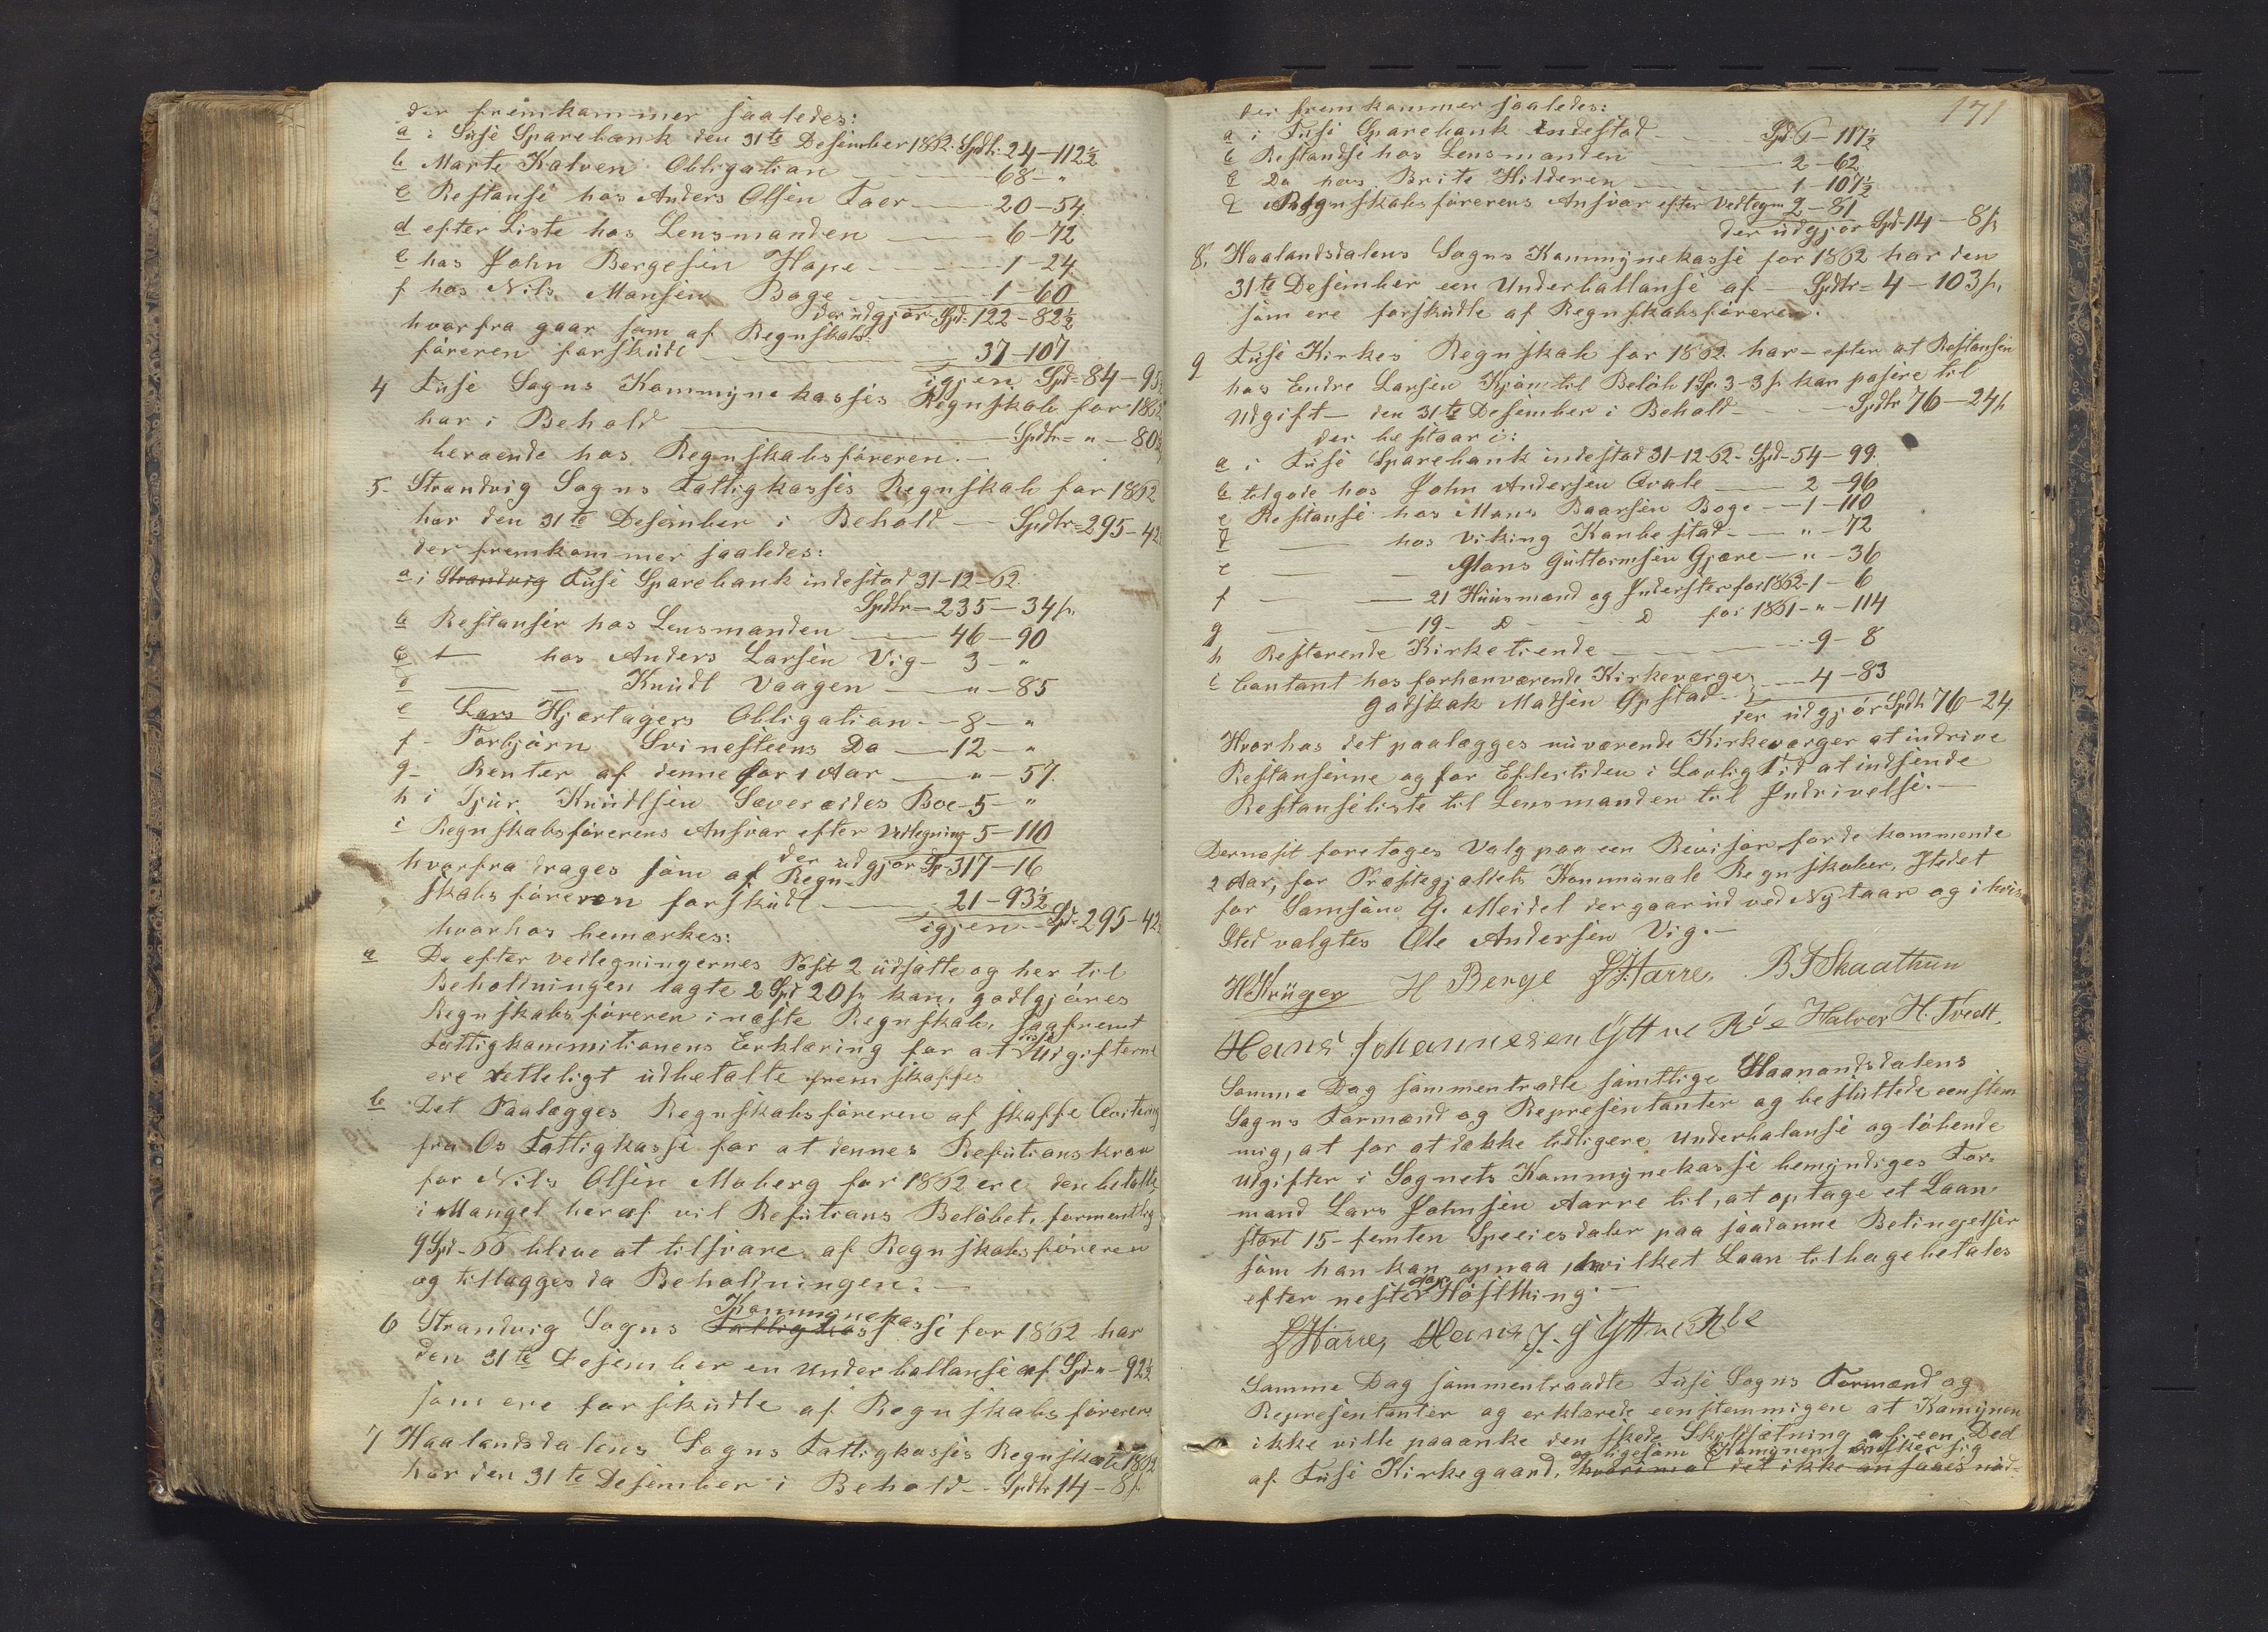 der fremkommer saaledes:
a i Fuse Sparebank den 31te Desember 1862. Spdlr. 24-112½
b Marte Kalven Obligation 68-"
c Restanse hos Anders Olsen Foer 20-54.
d efter Liste hos Lensmanden 6-72
e hos John Bergesen Hope 1-24
f hos Nils Monsen Boge 1-60
der udgjør Spd 122-82½
hvorfra gaar som af Regnskabs-
føreren forskudt 37-107
igjen Spd 84-95½
4 Fuse Sogns Kommynekasses Regnskab for 1862
har i Behold Spdlr " - 80½
beroende hos Regnskabsføreren.
5- Strandvig Sogns Fattigkasses Regnskab for 1862
har den 31te Desember i Behold Spdlr 295-42½
der fremkommer saaledes:
a i Strandvig Fuse Sparebank indestod 31-12-62.
Spdlr 235-34 s.
b Restanser hos Lensmanden 46-90
c hos Anders Larsen Vig 3-"
d Knudt Vaagen "-85
e Lars Hjertagers Obligation 8-"
f- Torbjørn Svinesteens Do 12-"
g- Renter af denne for 1 Aar "-57.
h i Sjur Knudtsen Sævereides Boe 5-"
i Regnskabsførerens Ansvar efter Vedtegning 5-110
der udgjør Sp 317-16
hvorfra drages som af Regn-
skabsføreren forskudt 21-93½
igjen Spd 295-42½
hvorhos bemærkes:
a De efter vedtegningernes Post 2 udsatte og her til
Beholdningen lagte 2 Spd 20 s. kan godtgjøres
Regnskabsføreren i næste Regnskab, saafremt
Fattigkommitionens Erklæring for at disse Udgifterne
ere retteligt udbetalte fremskaffes
b Det Paalægges Regnskabsføreren af skaffe Qvitering
fra Os Fattigkasse for at dennes Refutionskrav
for Nils Olsen Moberg for 1862 ere den betalt,
i Mangel heraf vil Refutions Beløbet, formentlig
9 Spd-66 blive at tilsvare af Regnskabsføreren
og tillægges da Beholdningen.
6 Strandvig Sogns Fattigkasse Kommynekasse for 1862 har
den 31te Desember en Underballanse af Spd " - 92½
som ere forskudte af Regnskabsføreren
7 Haalandsdalens Sogns Fattigkasses Regnskab 1862
har den 31te Desember i Behold Spdlr 14-8 s.
171
der fremkommer saaledes:
a i Fuse Sparebank indestod Spd 6-117½
b Restandse hos Lensmanden 2-62.
c Do hos Brite Hilderen 1-107½
d Regnskabsførerens Ansvar efter Vedtegn 2-81
der udgjør Spd 14-8 s.
8. Haalandsdalens Sogns Kommynekasse for 1862 har den
31te Desember een Underballanse af Spdlr 4-103 s.
som ere forskudte af Regnskabsføreren.
9 Fuse Kirkes Regnskab for 1862 har - efter at Restansen
hos Endre Larsen Kjøn til Beløb 1 Sp. 3-3 s. kan posere til
Udgift - den 31te Desember i Behold Spdlr 76-24 s.
der bestaar i:
a i Fuse Sparebank indestod 31-12-62 Spd 54-99.
b tilgode hos John Andersen Qvale 2-96
c Restanse hos Mons Baarsen Boge 1-110
d hos Viking Kanbestad "-72
e Mons Guttormsen Gjære "-36
f 21 Huusmænd og Inderster for 1862 1-6
g 19- D D for 1861 "-114
h Resterende Kirketiende 9-8
i Contant hos forhenværende Kirkeværger 4-83
Godskak Madsen Opstad
der udgjør Spdlr 76-24.
Hvorhos det paalægges nuværende Kirkeværger at inddrive
Restanserne og for Eftertiden i Lovlig Tid at indsende
Restanseliste til Lensmanden til Inddrivelse.
Dernæst foretoges Valg paa een Revisor for de kommende
2 Aar, for Præstegjældets Kommunale Regnskaber, Istedet
for Samson G. Meidel der gaar ud ved Nytaar og i hvis
Sted valgtes Ole Andersen Vig.
H Krüger H Berge L J Harre B T Skaathun
Hans Johannesen Yttre Rée Halvor H. Tvedt.
Samme Dag sammentraadte samtlige Haanandsdalens
Sogns Formænd og Representanter og besluttede eenstem
mig, at for at dække tidligere Underbalanse og løbende
Udgifter i Sognets Kommynekasse bemyndiges For-
mand Lars Johnsen Aarre til, at optage et Laan
stort 15- femten Speciesdaler paa saadanne Betingelser
som han kan opnaa, hvilket Laan tilbagebetales
efter neste Høstthing.
L J Harre, Hans J. Yttre Rée
Samme Dag sammentraadte Fuse Sogns Formænd og
Representanter og erklærede eenstemmigen at Komynen
ikke ville paaanke den skede Skyldsætning af een Deel
af Fuse Kirkegaard, hvorimod det ikke ansaaes nød-
og ligesom Komynen ønsker sig